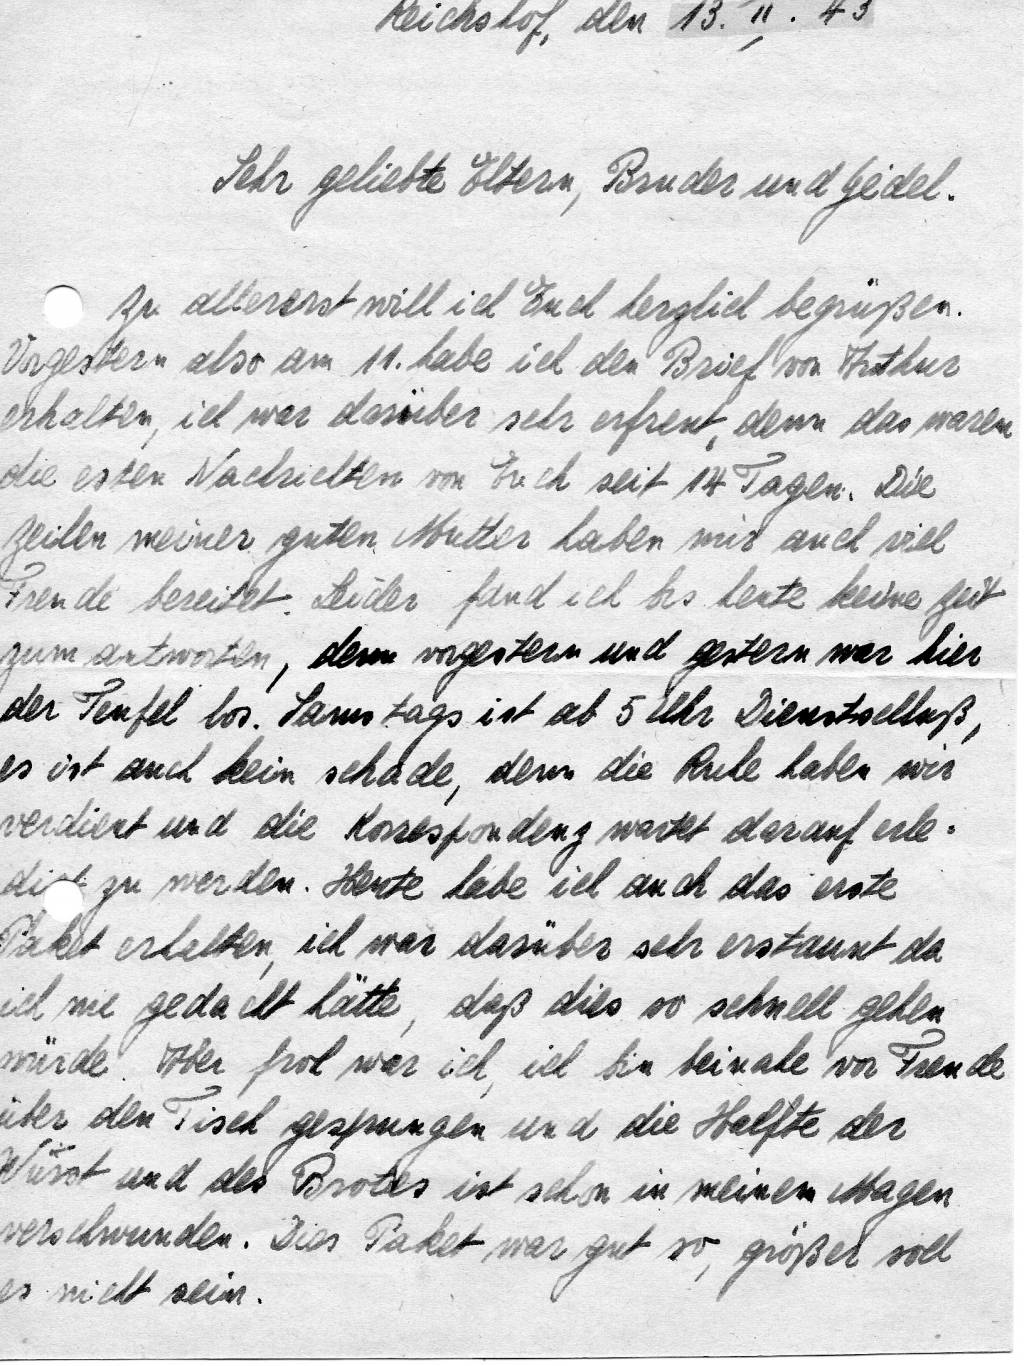 Reichshof, den 13. II. 43
Sehr geliebte Eltern, Bruder und Gidel.
Zu allererst will ich Euch herzlich begrüßen.
Vorgestern also am 11. habe ich den Brief von Arthur
erhalten, ich war darüber sehr erfreut, denn das waren
die esten Nachrichten von Euch seit 14 Tagen. Die
Zeilen meiner guten Mutter haben mir auch viel
Freude bereitet. Leider fand ich bis heute keine Zeit
zum antworten, denn vorgestern und gestern war hier
der Teufel los. Samstags ist ab 5 Uhr Dienstschluß,
es ist auch kein schade, denn die Ruhe haben wir
verdient und die Korrespondenz wartet darauf erle-
digt zu werden. Heute habe ich auch das erste
Paket erhalten, ich war darüber sehr erstaunt da
ich nie gedacht hätte, daß dies so schnell gehen
würde. Aber froh war ich, ich bin beinahe vor Freude
über den Tisch gesprungen und die Halfte der
Würst und des Brotes ist schon in meinem Magen
verschwunden. Dies Paket war gut so, größer soll
es nicht sein.